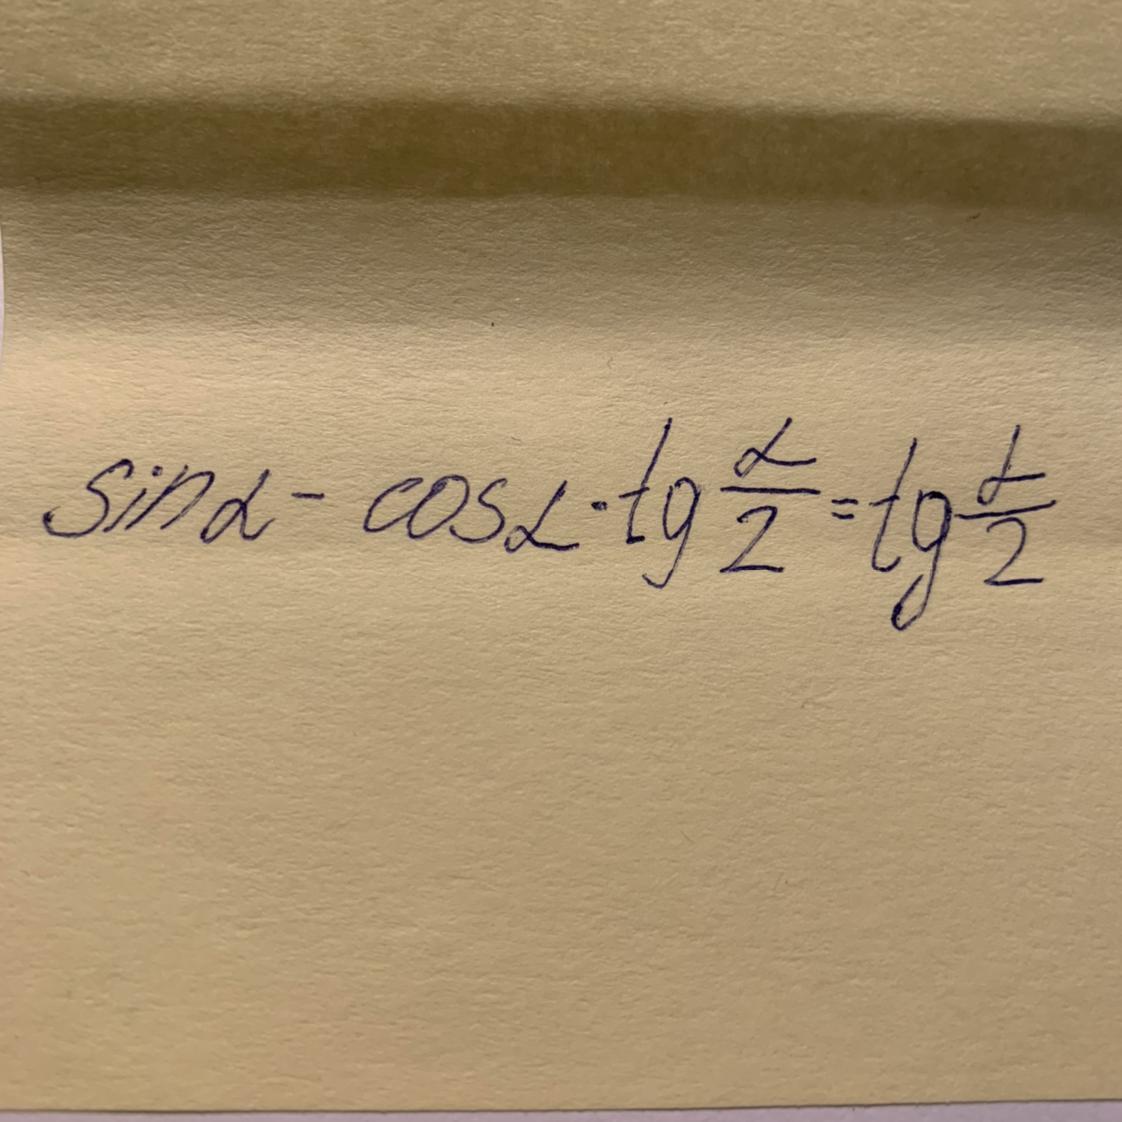 sinα - cosα · tg α/2 = tg α/2